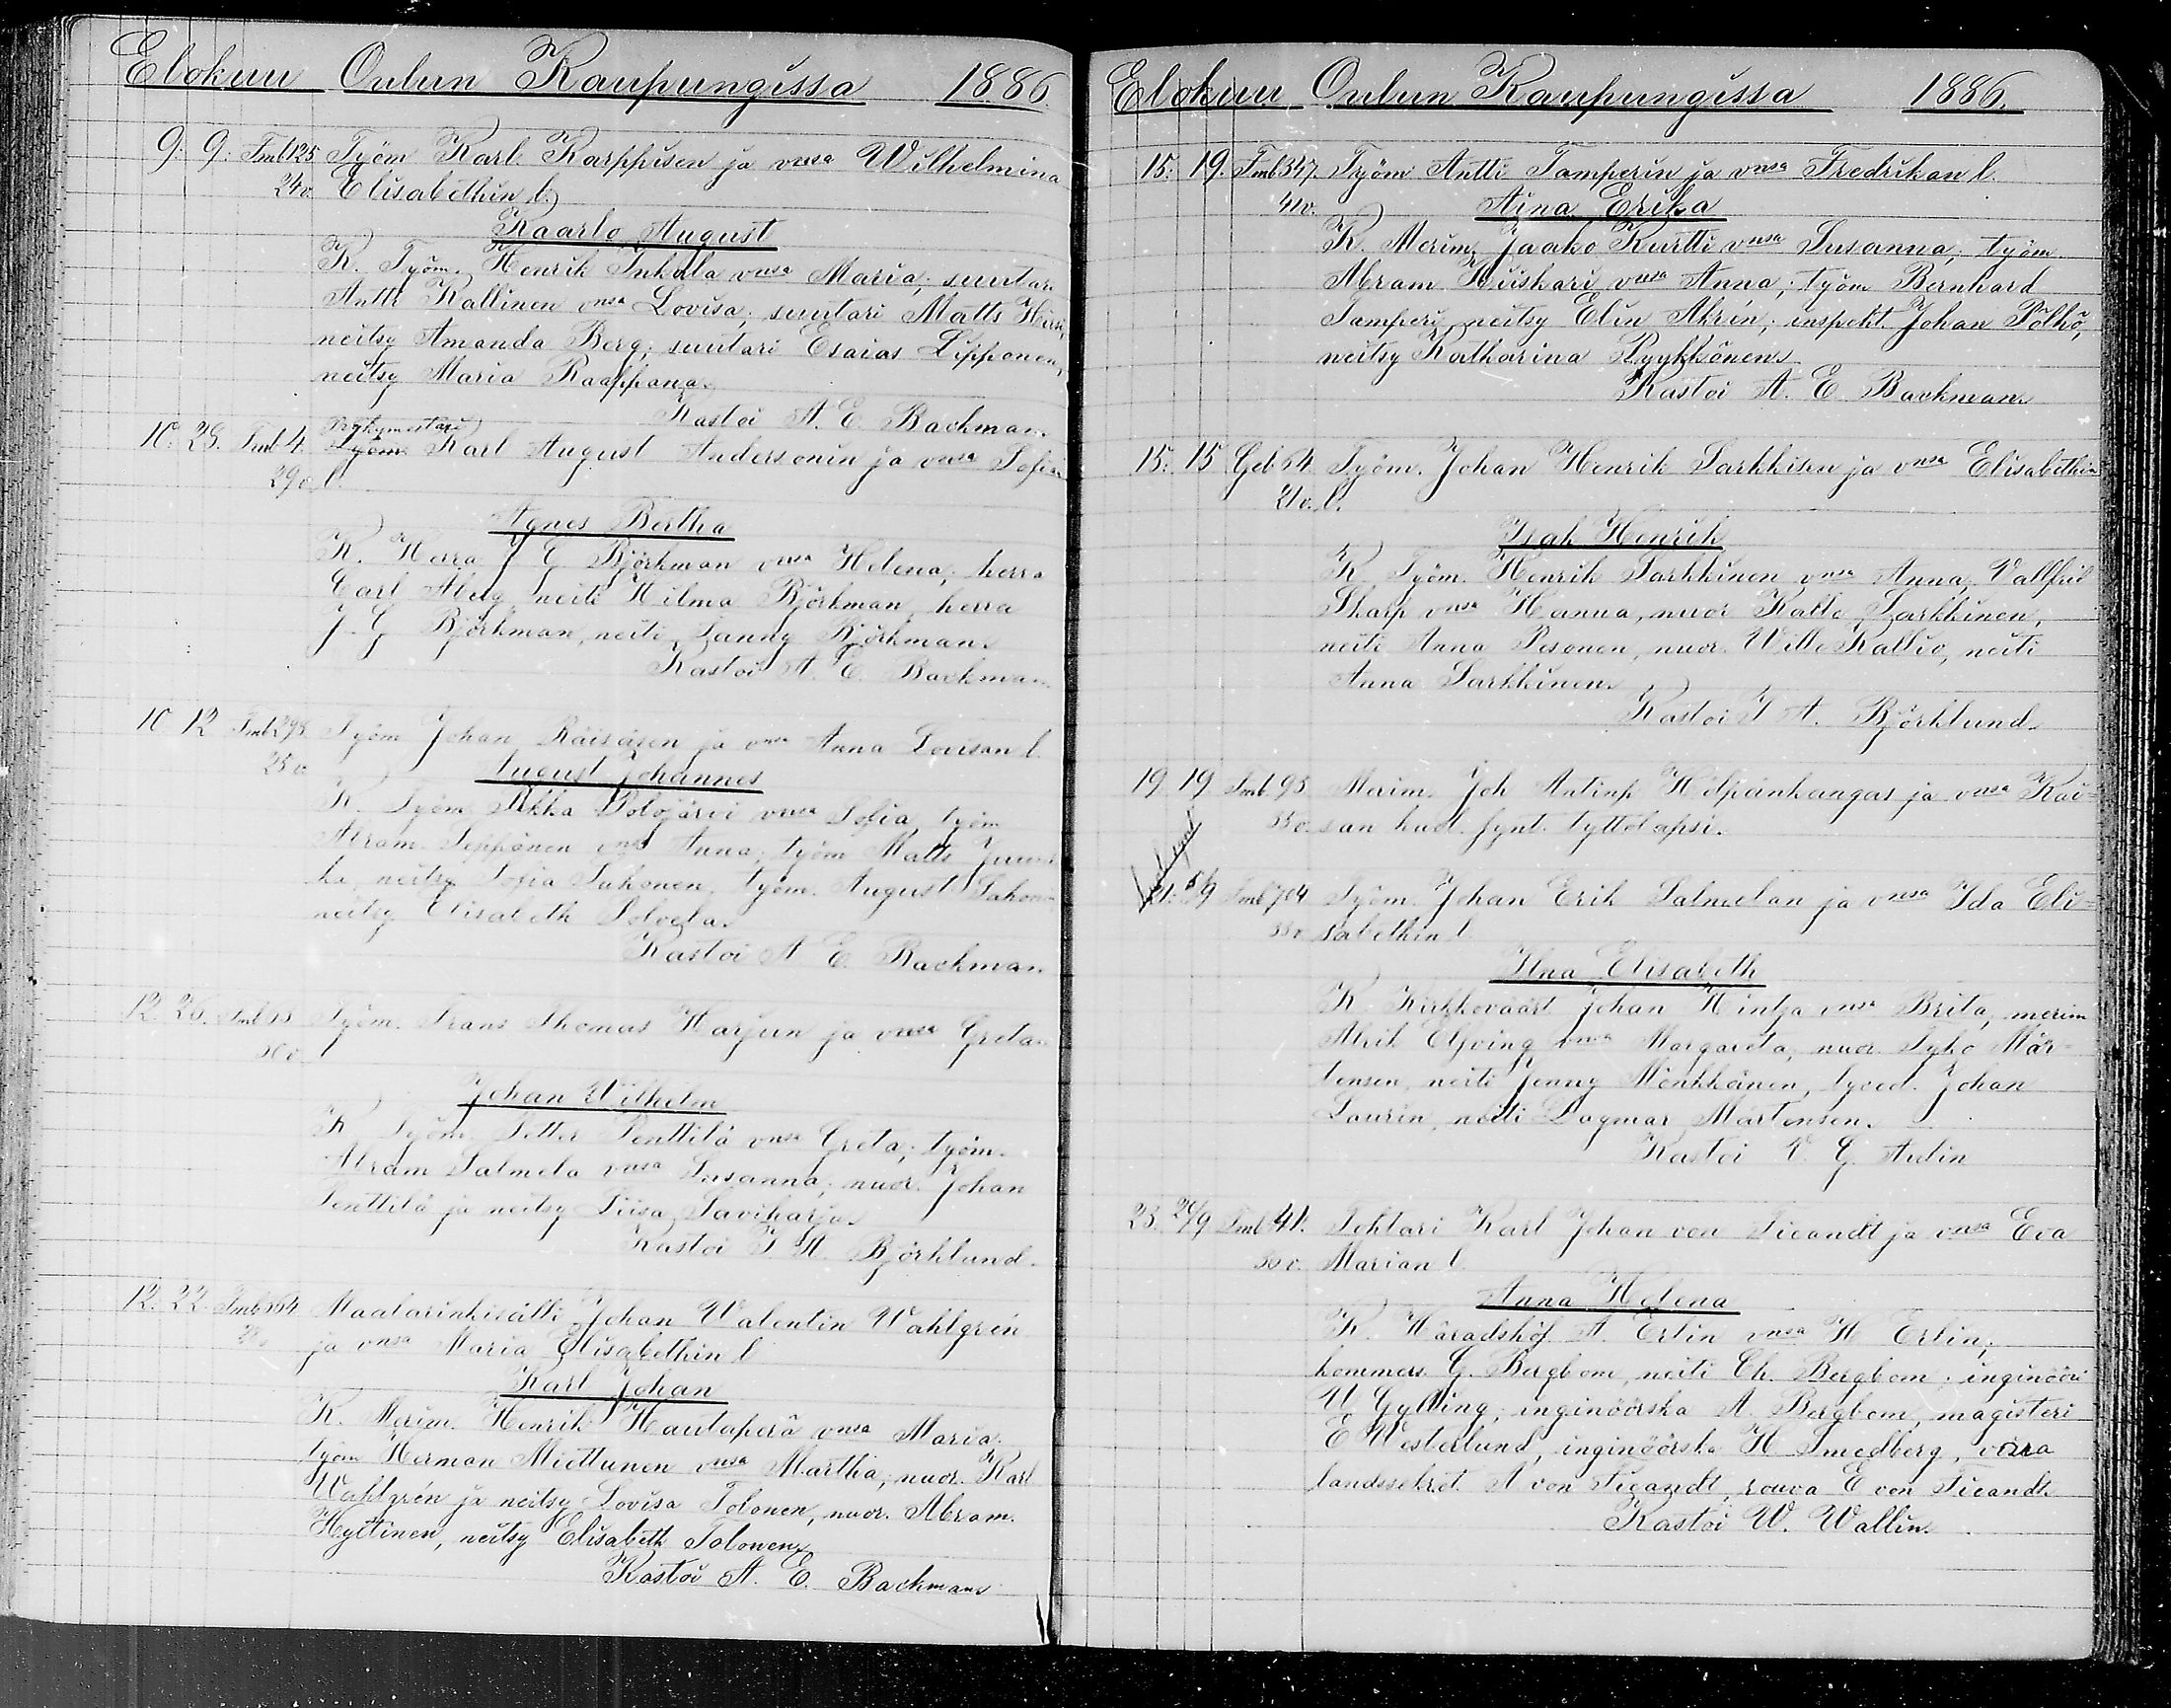 Elokuu Oulun Kaupungissa 1886.
9. 9. Tmb 125 Työm Karl Karppisen ja vmsa Wilhelmina
24 v. Elisabethin l.
Kaarlo August
K. Työm. Henrik Inkala vmsa Maria; suutari
Antti Kallinen vmsa Lovisa; suutari Matts Hirsi,
neitsy Amanda Berg; suutari Esaias Lipponen,
neitsy Maria Raappana.
Kastoi A. E. Backman.
10. 29. Tmb 4. Karl August Andersonin ja vmsa Sofian
29 v. l.
Agnes Bertha
K. Herra J E Björkman vmsa Helena; herra
Carl Aberg, neiti Hilma Björkman, herra
J. G Björkman, neiti Fanny Björkman.
Kastoi A. E. Backman.
10 12 Tmb 298 Työm Johan Räisäsen ja vmsa Anna Lovisan l.
25 v.
August Johannes
K. Työm. Pekka Polojärvi vmsa Sofia, työm
Abram Seppänen vmsa Anna; työm Matts
neitsy Sofia Sahonen, työm. August Sahonen
neitsy Elisabeth Solvela.
Kastoi A E. Backman.
12. 26. Työm. Frans Thomas Harjun ja vmsa Gretan
30 v. l
Johan Wilhelm
K. Työm. Petter Penttilä vmsa Greta; työm.
Abram Salmela vmsa Susanna; nuor. Johan
Penttilä ja neitsy Liisa Saviharju.
Kastoi I. A. Björklund.
12. 22. Tmb 564 Maalarinkisälli Johan Walentin Wahlgrén
ja vmsa Maria Elisabethin l
Karl Johan
K. Merim. Henrik Hautaperä vmsa Maria;
työm Herman Miettunen vmsa Martha; nuor. Karl
Wahlgrén ja neitsy Lovisa Tolonen, nuor. Abram.
Hyttinen, neitsy Elisabeth Tolonen.
Kastoi A. E. Backman
Elokuu Oulun Kaupungissa 1886.
15. 19. Tmb 347. Työm Antti Tamperin ja vmsa Fredrikan l.
41 v.
Aina Erika
K. Merim. Jaako Kurtti vmsa Susanna; työm.
Abram Kuiskari vmsa Anna; työm Bernhard
Tamperi, neitsy Elin Akrén; inspekt. Johan Pölhö,
neitsy Katharina Pyykkönen.
Kastoi A. E. Backman.
15. 15 Geb 64. Työm. Johan Henrik Sarkkisen ja vmsa Elisabethin
21 v. l.
Isak Henrik
K. Työm. Henrik Sarkkinen vmsa Anna, Vallfrid
Skarp vmsa Hanna, nuor Kalle Sarkkinen,
neiti Anna Pesonen, nuor. Wille Kallio, neiti
Anna Sarkkinen.
Kastoi I A. Björklund.
19 19 Tmb 95 Merim. Joh Antinp Hilpeinkangas ja vmsa Kai=
35 v. san kuol. synt. tyttölapsi.
21. 5/9 Tmb 704 Työm. Johan Erik Salmelan ja vmsa Ida Eli=
33 v. sabethin l
Ilna Elisabeth
K. Kirkkoväärt. Johan Hintsa vmsa Brita, merim
Alrik Elfving vmsa Margareta, nuor. Tyko Mår=
tensen, neiti Jenny Mönkkönen, Johan
Laurin, neiti Dagmar Mårtensen.
Kastoi V. G. Aulin
23. 26/9 Tmb 41. Tohtari Karl Johan von Ficandt ja vmsa Eva
36 v. Marian l.
Anna Helena
K. Häradshöf. A Erlin vmsa H Erlin;
kommers G. Bergbom, neiti Ch. Bergbom; inginööri
W Gylling, inginöörska A. Bergbom, magisteri
E Westerlund, inginöörska H Smedberg, vara
landssekret. A von Ficandt, rouva E von Ficandt.
Kastoi W. Wallin.